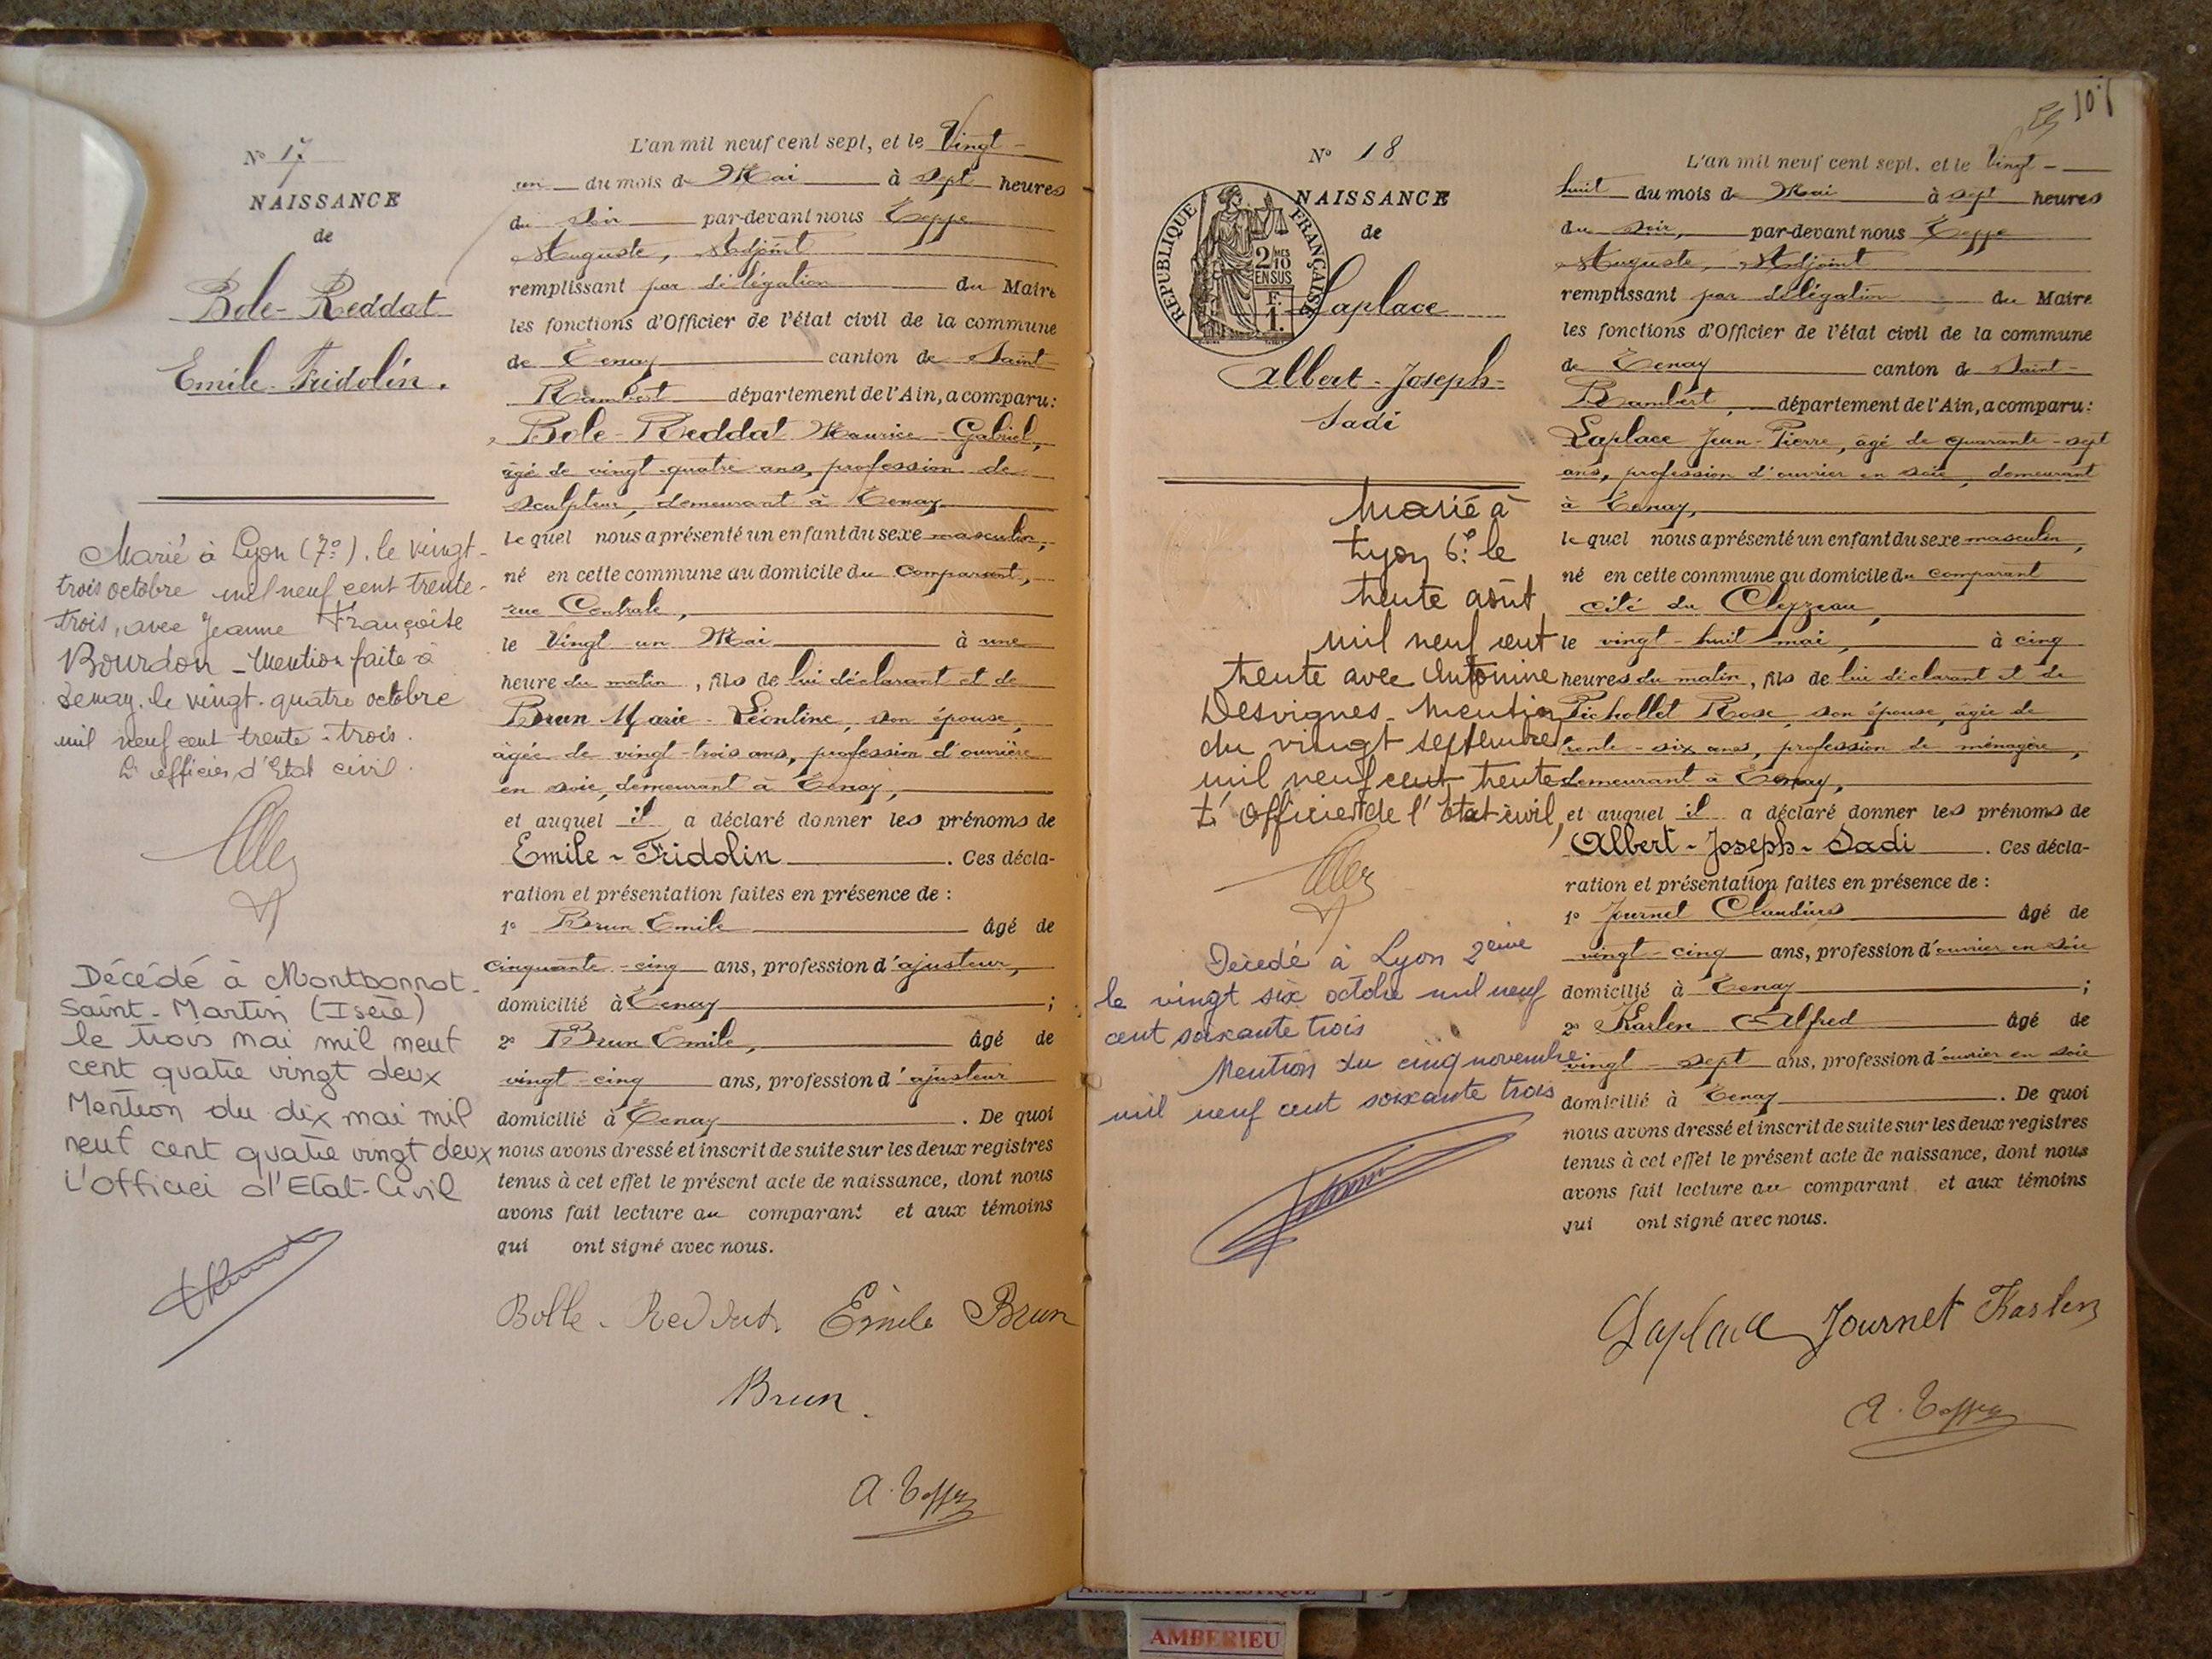 N° 17
NAISSANCE
de
Bole-Reddat
Emile-Fridolin.
Marié à Lyon (7e). le vingt-
trois octobre mil neuf cent trente-
trois, avec Jeanne Françoise
Bourdon - Mention faite à
Tenay, le vingt-quatre octobre
mil neuf cent trente-trois.
L'officier d'Etat civil.
Décédé à Montbonnot-
Saint-Martin (Isère)
le trois mai mil neuf
cent quatre vingt deux
Mention du dix mai mil
neuf cent quatre vingt deux
L'officier d'Etat-Civil
L'an mil neuf cent sept, et le Vingt-
un du mois de Mai à sept heures
du soir par-devant nous Teppe
Auguste, Adjoint
remplissant par délégation du Maire
les fonctions d'Officier de l'état civil de la commune
de Tenay canton de Saint
Rambert département de l'Ain, a comparu:
Bole-Reddat Maurice-Gabriel,
âgé de vingt-quatre ans, profession de
sculpteur, demeurant à Tenay
lequel nous a présenté un enfant du sexe masculin,
né en cette commune au domicile du comparant,
rue Centrale,
le Vingt un Mai à une
heure du matin, fils de lui déclarant et de
Brun Marie-Léontine, son épouse,
âgée de vingt-trois ans, profession d'ouvrière
en soie, demeurant à Tenay,
et auquel il a déclaré donner les prénoms de
Emile-Fridolin. Ces décla-
ration et présentation faites en présence de :
1° Brun Emile âgé de
cinquante-cinq ans, profession d'ajusteur,
domicilié à Tenay ;
2° Brun Emile, âgé de
vingt-cinq ans, profession d'ajusteur
domicilié à Tenay. De quoi
nous avons dressé et inscrit de suite sur les deux registres
tenus à cet effet le présent acte de naissance, dont nous
avons fait lecture au comparant et aux témoins
qui ont signé avec nous.
Bolle-Reddat Emile Brun
Brun.
A. Teppe
105
N° 18
NAISSANCE
de
RÉPUBLIQUE FRANÇAISE
2/10 MES
EN SUS
F.
1.
Laplace
Albert-Joseph-
Sadi
Marié à
Lyon 6e le
trente août
mil neuf cent
trente avec Antonine
Desvignes. Mention
du vingt septembre
mil neuf cent trente
L'Officier de l'Etat civil,
Décédé à Lyon 2ème
le vingt six octobre mil neuf
cent soixante trois
Mention du cinq novembre
mil neuf cent soixante trois
L'an mil neuf cent sept, et le Vingt-
huit du mois de Mai à sept heures
du soir, par-devant nous Teppe
Auguste, Adjoint
remplissant par délégation du Maire
les fonctions d'Officier de l'état civil de la commune
de Tenay canton de Saint-
Rambert, département de l'Ain, a comparu:
Laplace Jean-Pierre, âgé de quarante-sept
ans, profession d'ouvrier en soie, demeurant
à Tenay,
lequel nous a présenté un enfant du sexe masculin,
né en cette commune au domicile du comparant
cité du Clezzeau,
le vingt-huit mai, à cinq
heures du matin, fils de lui déclarant et de
Pichollet Rose, son épouse, âgée de
trente-six ans, profession de ménagère,
demeurant à Tenay,
et auquel il a déclaré donner les prénoms de
Albert-Joseph-Sadi. Ces décla-
ration et présentation faites en présence de :
1° Journet Claudius âgé de
vingt-cinq ans, profession d'ouvrier en soie
domicilié à Tenay ;
2° Karlen Alfred âgé de
vingt-sept ans, profession d'ouvrier en soie
domicilié à Tenay. De quoi
nous avons dressé et inscrit de suite sur les deux registres
tenus à cet effet le présent acte de naissance, dont nous
avons fait lecture au comparant et aux témoins
qui ont signé avec nous.
Laplace Journet Karlen
A. Teppe
AMBERIEU ARTISTIQUE
AMBERIEU